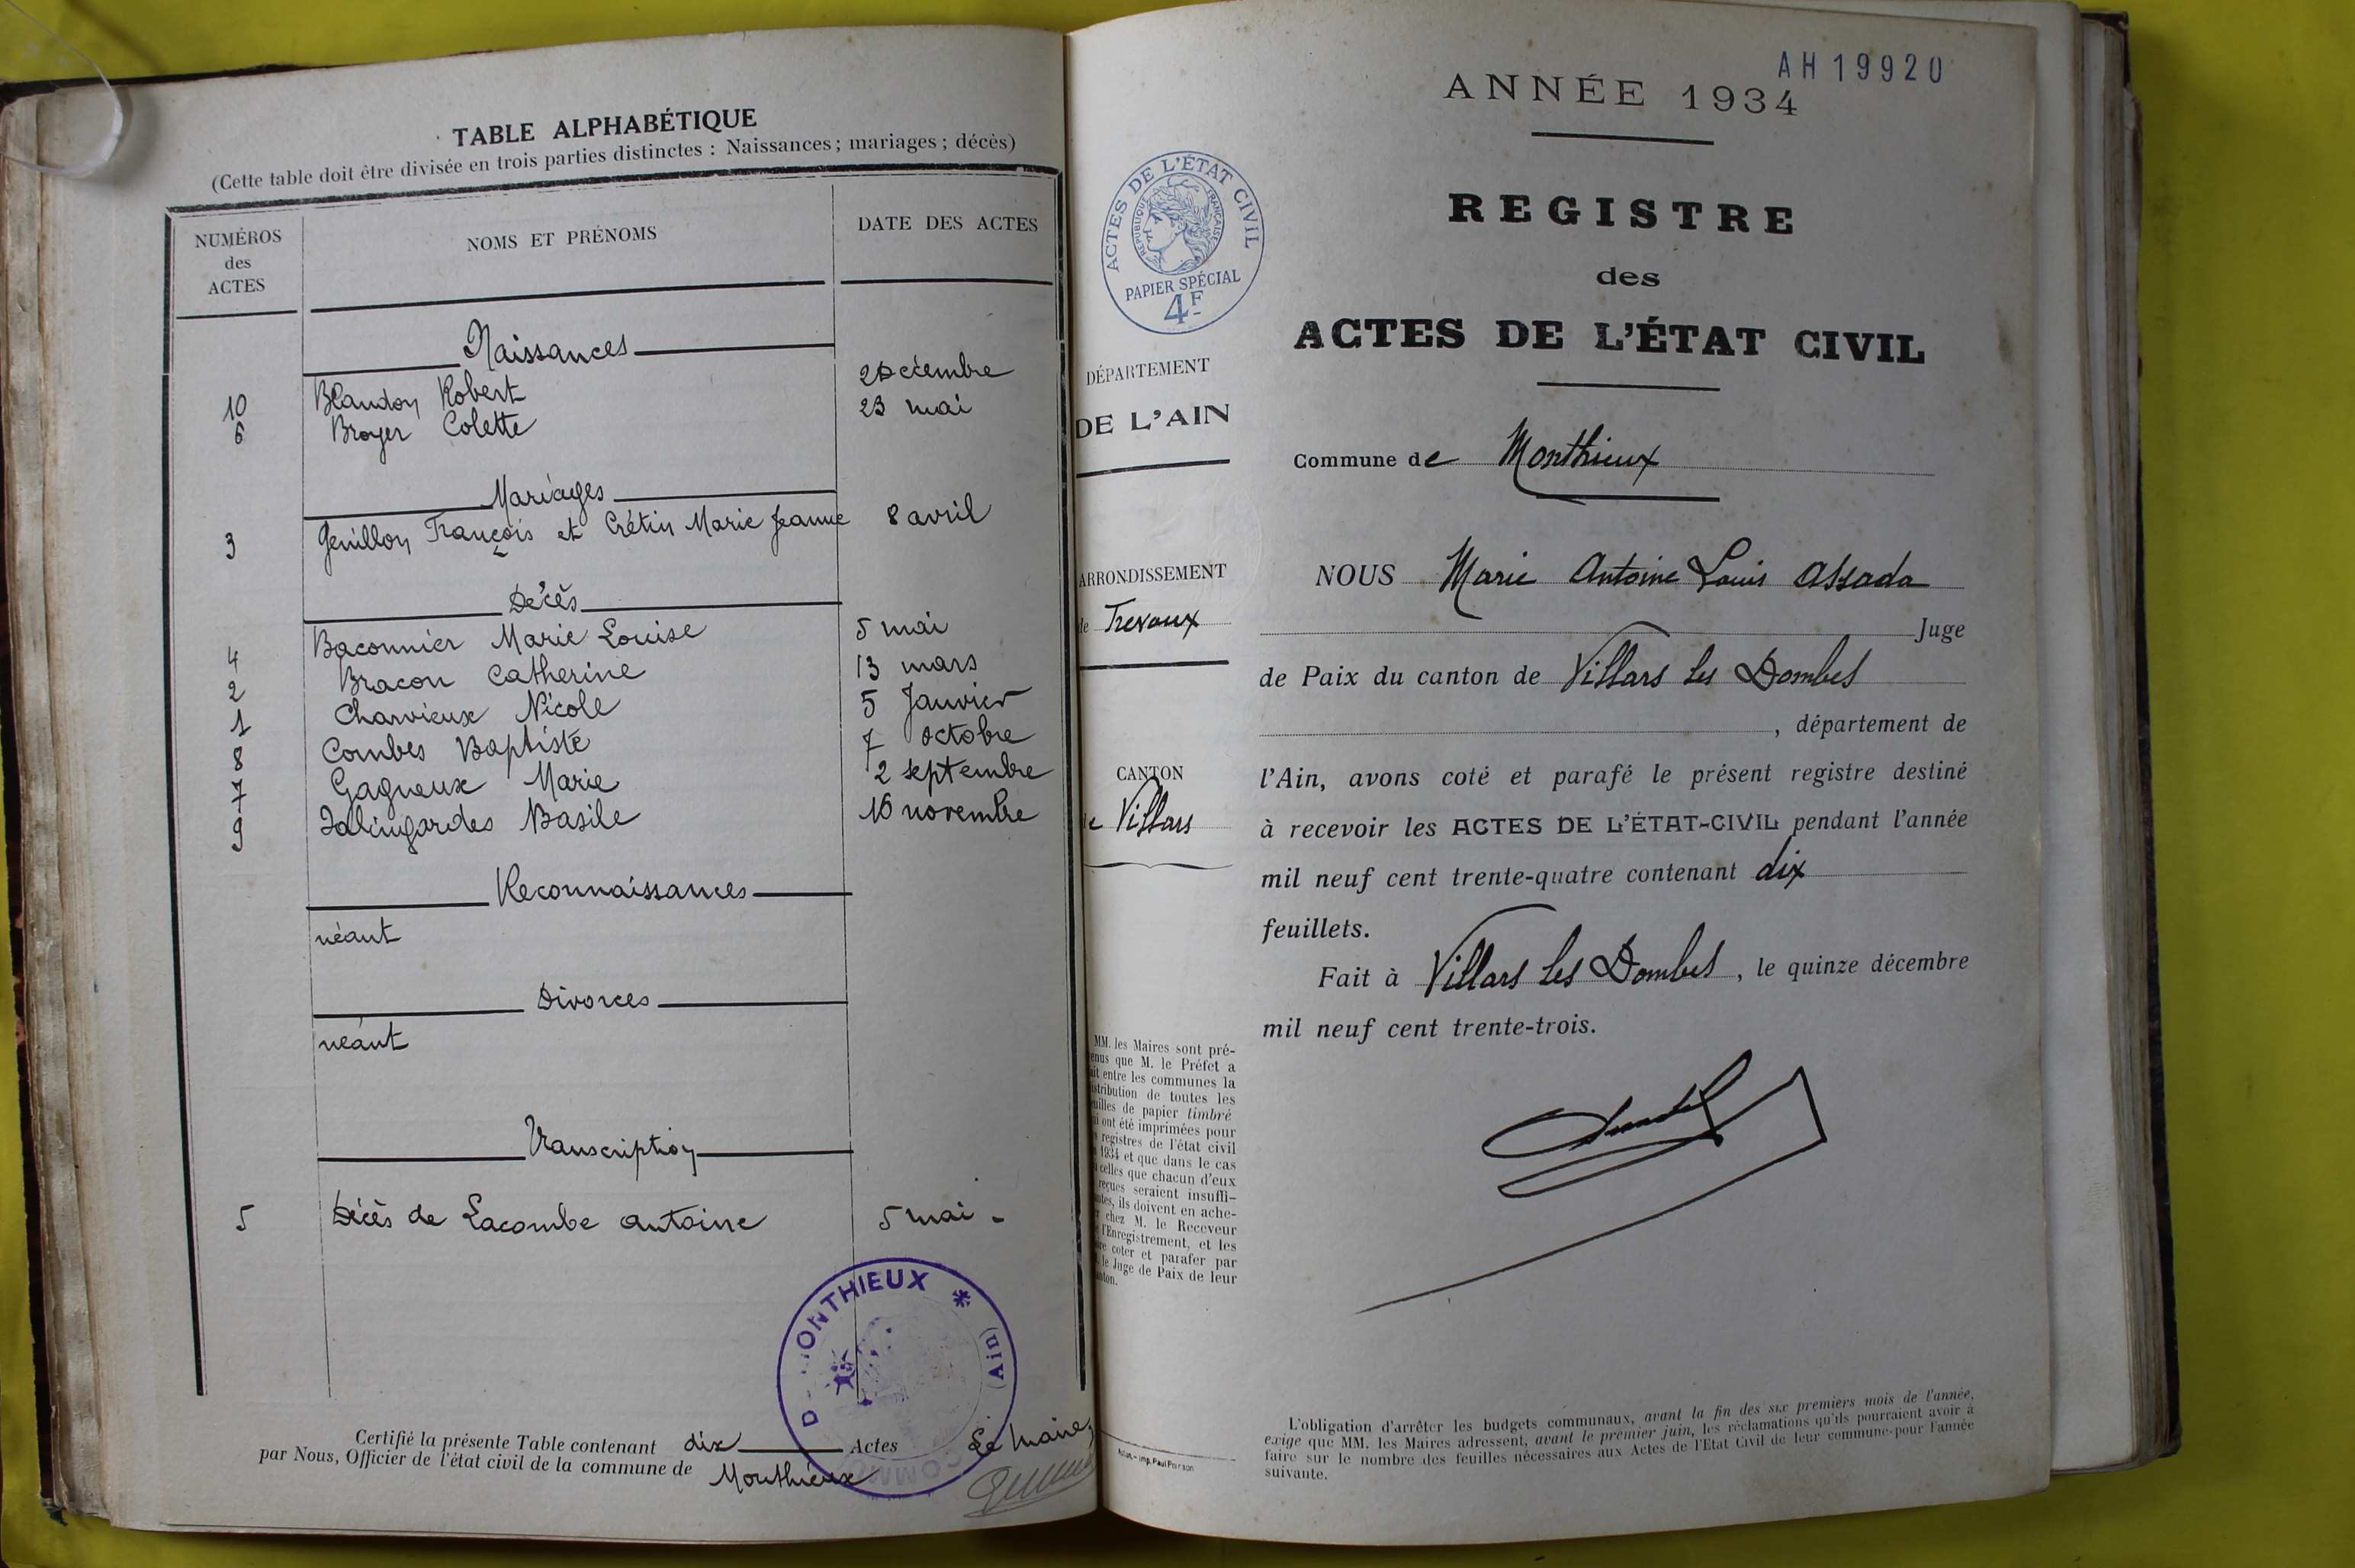 TABLE ALPHABÉTIQUE
(Cette table doit être divisée en trois parties distinctes : Naissances ; mariages ; décès)
NUMÉROS
des
ACTES
NOMS ET PRÉNOMS
DATE DES ACTES
Naissances
10 Blandon Robert 2 Décembre
6 Broyer Colette 23 mai
Mariages
3 Genillon François et Crétin Marie Jeanne 8 avril
Décès
4 Baconnier Marie Louise 5 mai
2 Bracon Catherine 13 mars
1 Charvieux Nicole 5 Janvier
8 Combes Baptiste 7 octobre
7 Gagneux Marie 2 septembre
9 Basile 16 novembre
Reconnaissances
néant
Divorces
néant
Transcription
5 Décès de Lacombe Antoine 5 mai -
MONTHIEUX * (Ain)
Certifié la présente Table contenant dix Actes Le Maire,
par Nous, Officier de l'état civil de la commune de Monthieux
AH19920
ANNÉE 1934
REGISTRE
des
ACTES DE L'ÉTAT CIVIL
ACTES DE L'ÉTAT CIVIL
RÉPUBLIQUE FRANÇAISE
PAPIER SPÉCIAL
4F
DÉPARTEMENT
DE L'AIN
ARRONDISSEMENT
de Trevoux
CANTON
de Villars
MM. les Maires sont pré-
que M. le Préfet a
entre les communes la
de toutes les
de papier timbré
ont été imprimées pour
registres de l'état civil
1934 et que dans le cas
celles que chacun d'eux
reçues seraient insuffi-
ils doivent en ache-
chez M. le Receveur
l'Enregistrement, et les
coter et parafer par
le Juge de Paix de leur
Imp. Paul
Commune de Monthieux
NOUS Marie Antoine Louis Assada
Juge
de Paix du canton de Villars les Dombes
, département de
l'Ain, avons coté et parafé le présent registre destiné
à recevoir les ACTES DE L'ÉTAT-CIVIL pendant l'année
mil neuf cent trente-quatre contenant dix
feuillets.
Fait à Villars les Dombes, le quinze décembre
mil neuf cent trente-trois.
L'obligation d'arrêter les budgets communaux, avant la fin des six premiers mois de l'année,
exige que MM. les Maires adressent, avant le premier juin, les réclamations qu'ils pourraient avoir à
faire sur le nombre des feuilles nécessaires aux Actes de l'Etat Civil de leur commune pour l'année
suivante.